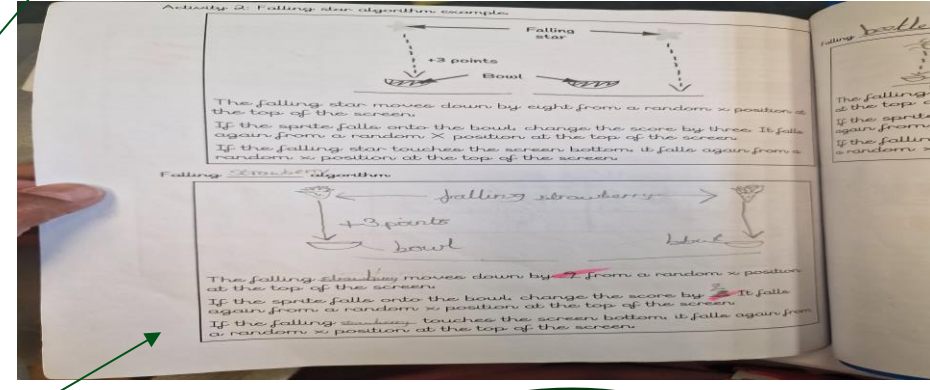 Activity 2: Falling star algorithm example
Falling
star
+3 points
Bowl
The falling star moves down by eight from a random x position at
the top of the screen.
If the sprite falls onto the bowl, change the score by three. It falls
again from a random X position at the top of the screen.
If the falling star touches the screen bottom, it falls again from a
random x position at the top of the screen.
Falling strawberry algorithm
falling strawberry
+3 points
bowl
The falling strawberry moves down by from a random x position
at the top of the screen.
If the sprite falls onto the bowl, change the score by It falls
again from a random x position at the top of the screen.
If the falling strawberry touches the screen bottom, it falls again from
a random x position at the top of the screen.
Falling
The falling
at the top
If the sprite
again from
If the fallin
a random x